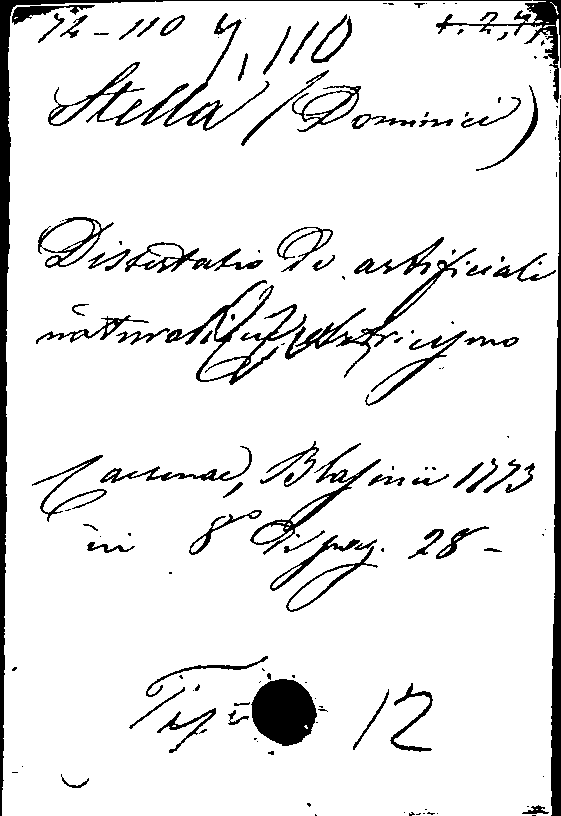 72-110 y, 110 t. 2, 77
Stella (Dominici)
Dissertatio De artificiali
naturalique
Caesenae, Blasinii 1773
in 8° Di pag. 28-
Tip 12